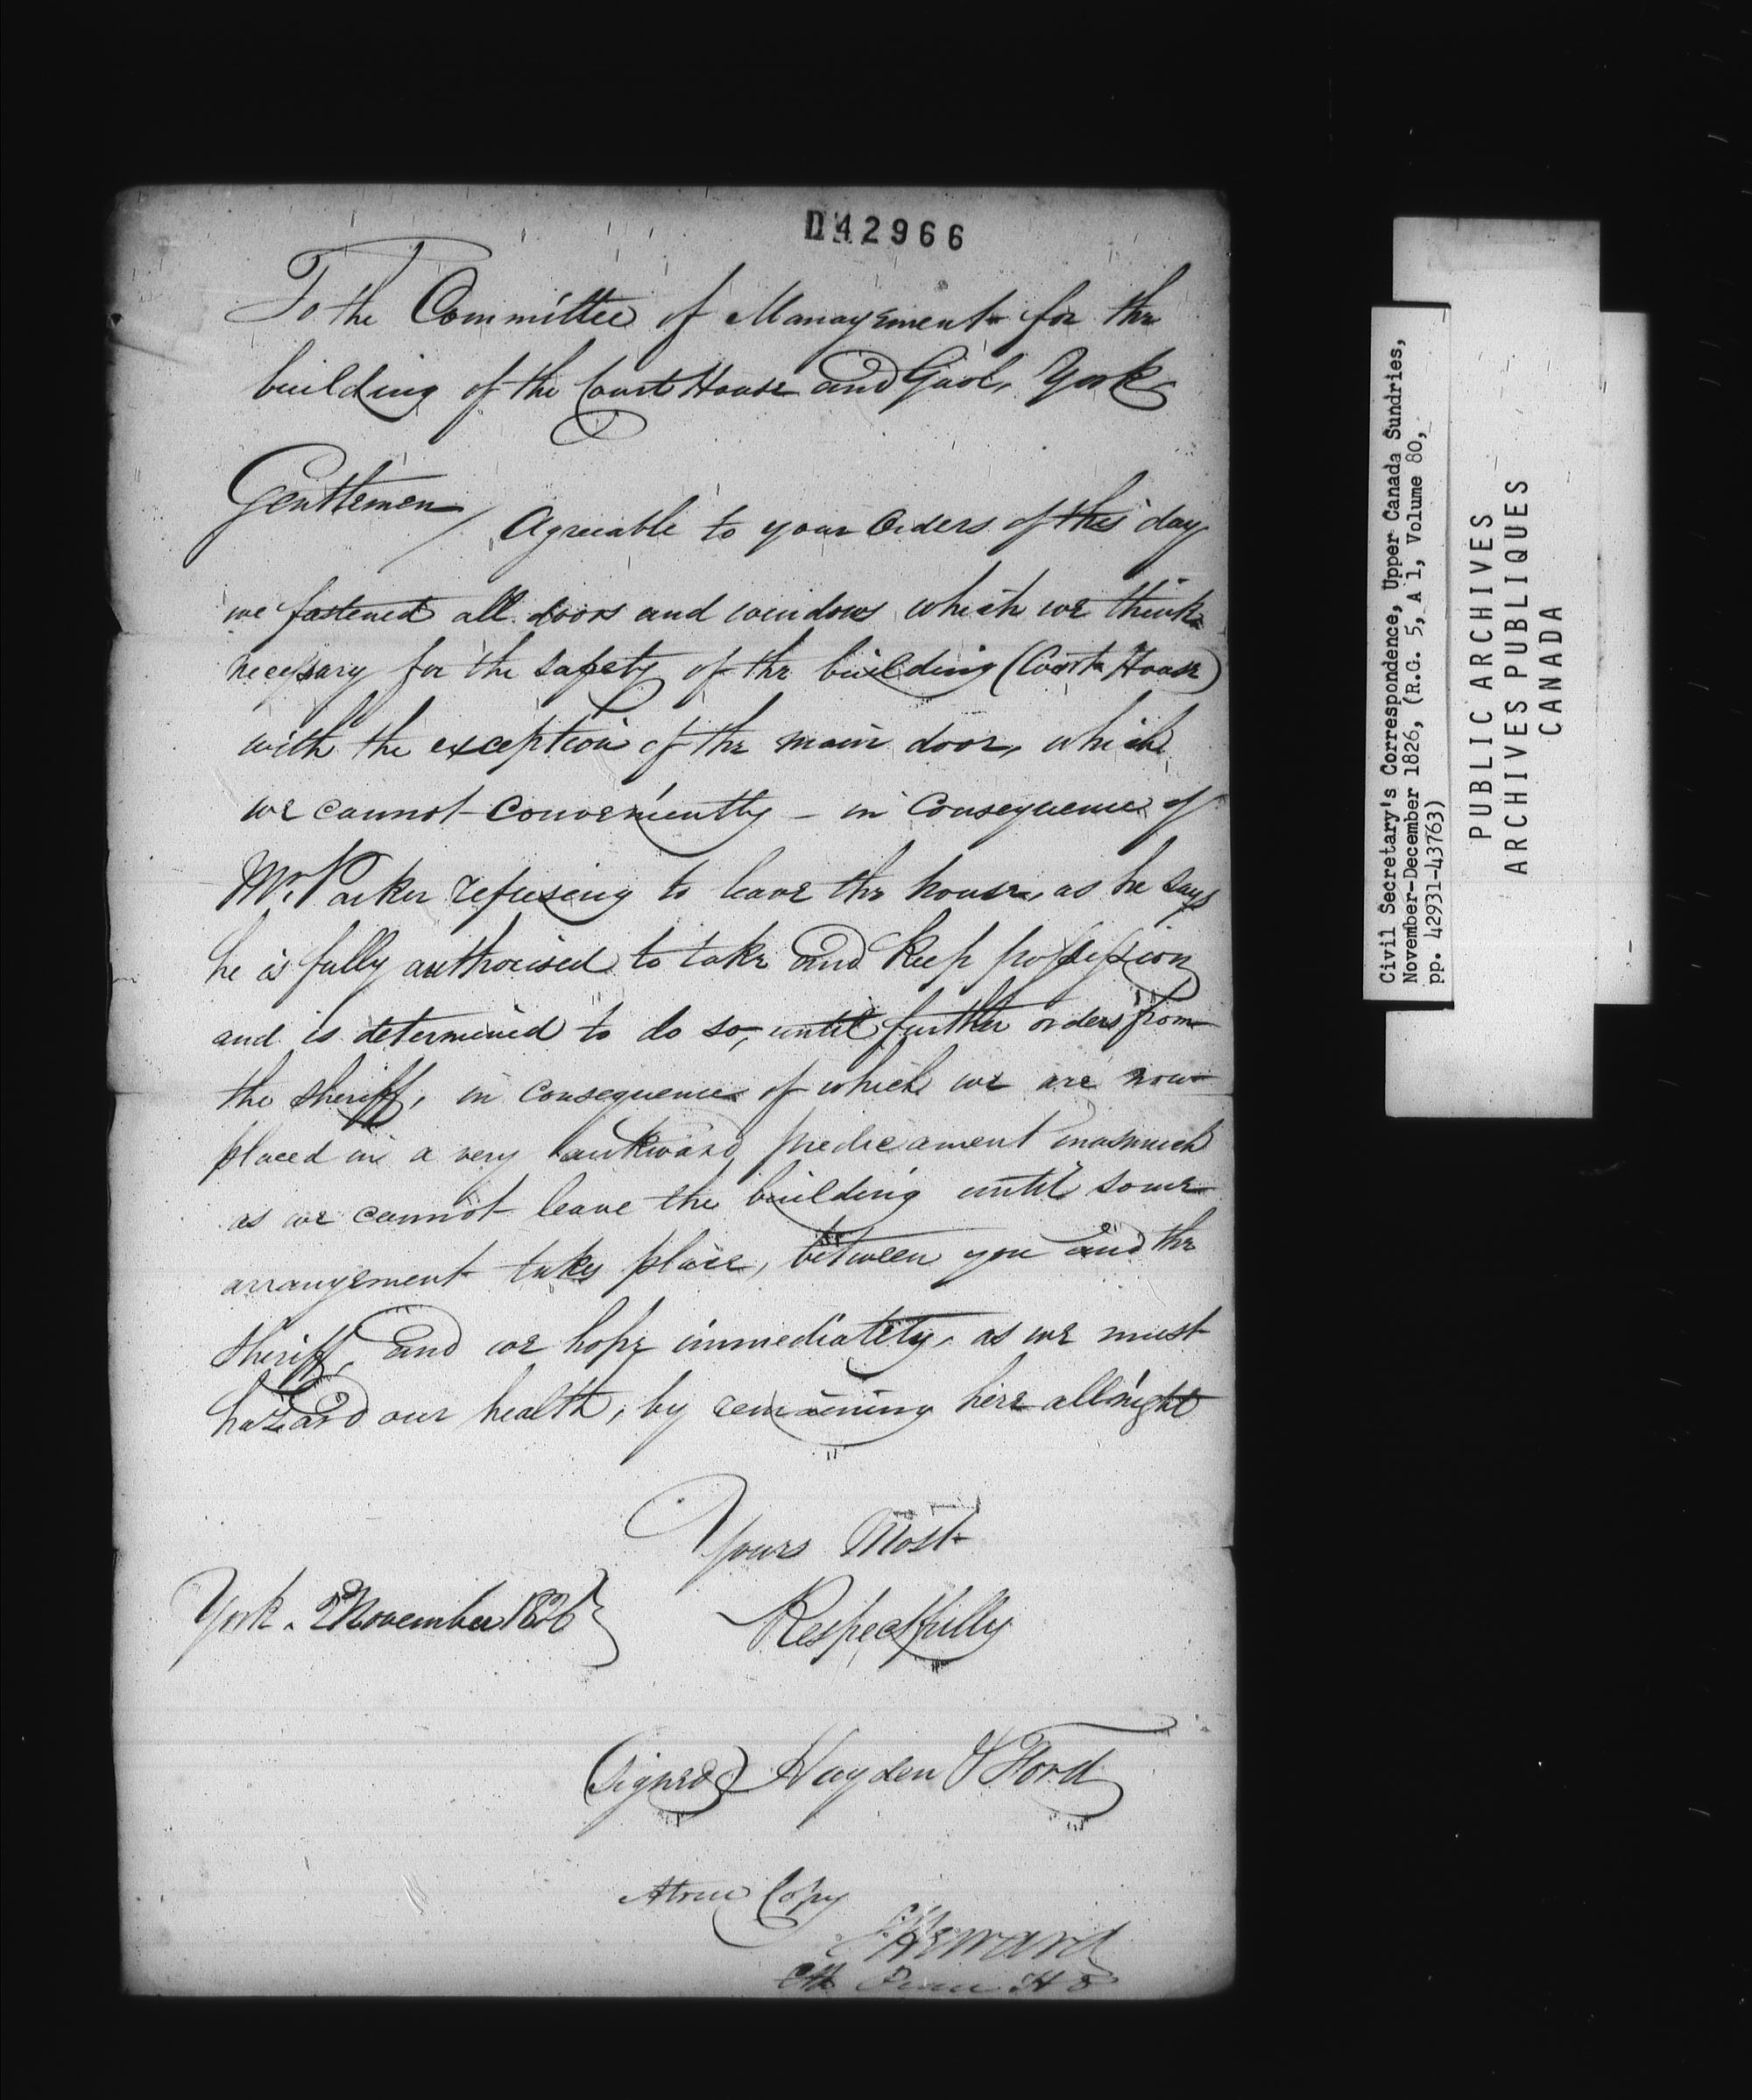 D42966
To the Committee of Management for the
building of the Court House and Gaol, York
Gentlemen/ Agreeable to your Orders of this day
we fastened all doors and windows which we think
necessary for the safety of the building (Court House)
with the exception of the main door, which
we cannot conveniently – in Consequence of
Mr. Parker refusing to leave the house, as he says
he is fully authorised to take and keep possession
and is determined to do so, until further orders from
the Sheriff, in consequence of which we are now
placed in a very aukward predicament inasmuch
as we cannot leave the building until some
arrangement takes place, between you and the
Sheriff, and we hope immediately, as we must
hazard our health, by remaining here all night
Yours Most
Respectfully
York. 2 November 1826
(Signed) Hayden & Ford
A true Copy
Heward
Civil Secretary's Correspondence, Upper Canada Sundries,
November-December 1826, (R.G. 5, A 1, Volume 80,
pp. 42931-43763)
PUBLIC ARCHIVES
ARCHIVES PUBLIQUES
CANADA